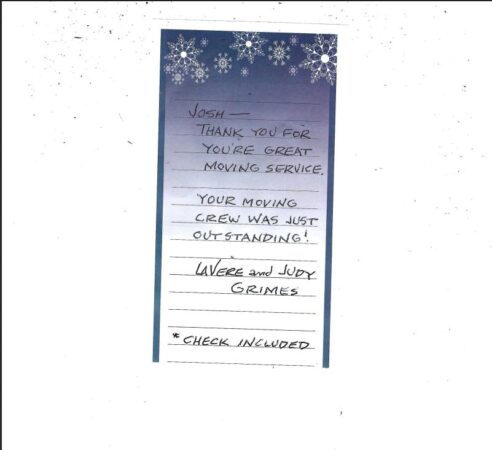 JOSH —
THANK YOU FOR
YOU'RE GREAT
MOVING SERVICE.
YOUR MOVING
CREW WAS JUST
OUTSTANDING!
LAVERE and JUDY
GRIMES
* CHECK INCLUDED